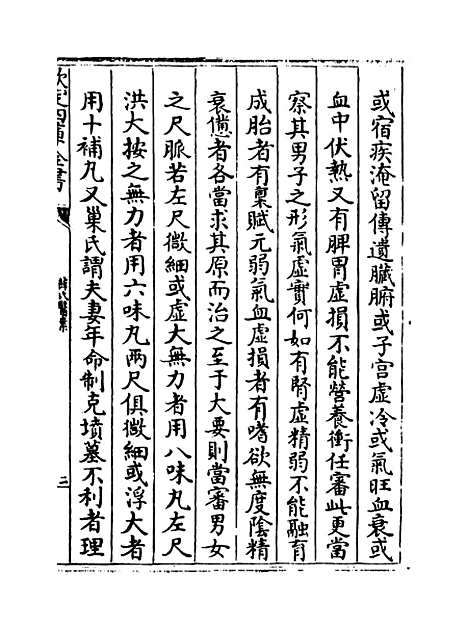 或宿疾淹留傳遺臟腑或子宫虚冷或氣旺血衰或
血中伏熱又有脾胃虚損不能營養衝任審此更當
察其男子之形氣虚實何如有腎虚精弱不能融育
成胎者有稟賦元弱氣血虚損者有嗜欲無度陰精
衰憊者各當求其原而治之至于大要則當審男女
之尺脈若左尺微細或虚大無力者用八味丸左尺
洪大按之無力者用六味丸兩尺俱微細或浮大者
用十補丸又巢氏謂夫妻年命制克墳墓不利者理
欽定四庫全書
薛氏醫案
三